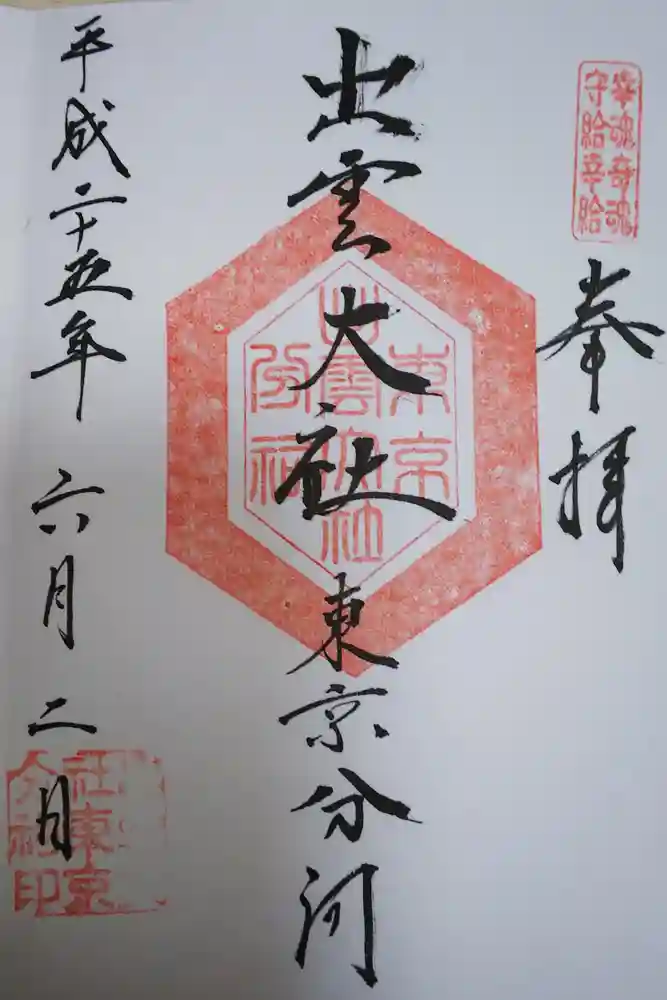 幸魂奇魂
守給幸給
奉拝
出雲大社東京分祠
東京
出雲大社
分祠
平成二十五年六月二日
社東京
分祠印